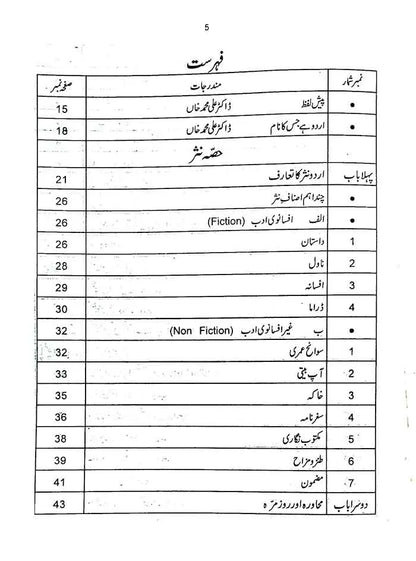 5
فہرست
نمبر شمار مندرجات صفحہ نمبر
• پیش لفظ ڈاکٹر علی محمد خاں 15
• اردو ہے جس کا نام ڈاکٹر علی محمد خاں 18
حصّہ نثر
پہلا باب اردو نثر کا تعارف 21
• چند اہم اصنافِ نثر 26
• الف افسانوی ادب (Fiction) 26
1 داستان 26
2 ناول 28
3 افسانہ 29
4 ڈراما 30
• ب غیر افسانوی ادب (Non Fiction) 32
1 سوانح عمری 32
2 آپ بیتی 33
3 خاکہ 35
4 سفرنامہ 36
5 مکتوب نگاری 38
6 طنز و مزاح 39
7 مضمون 41
دوسرا باب محاورہ اور روزمرّہ 43